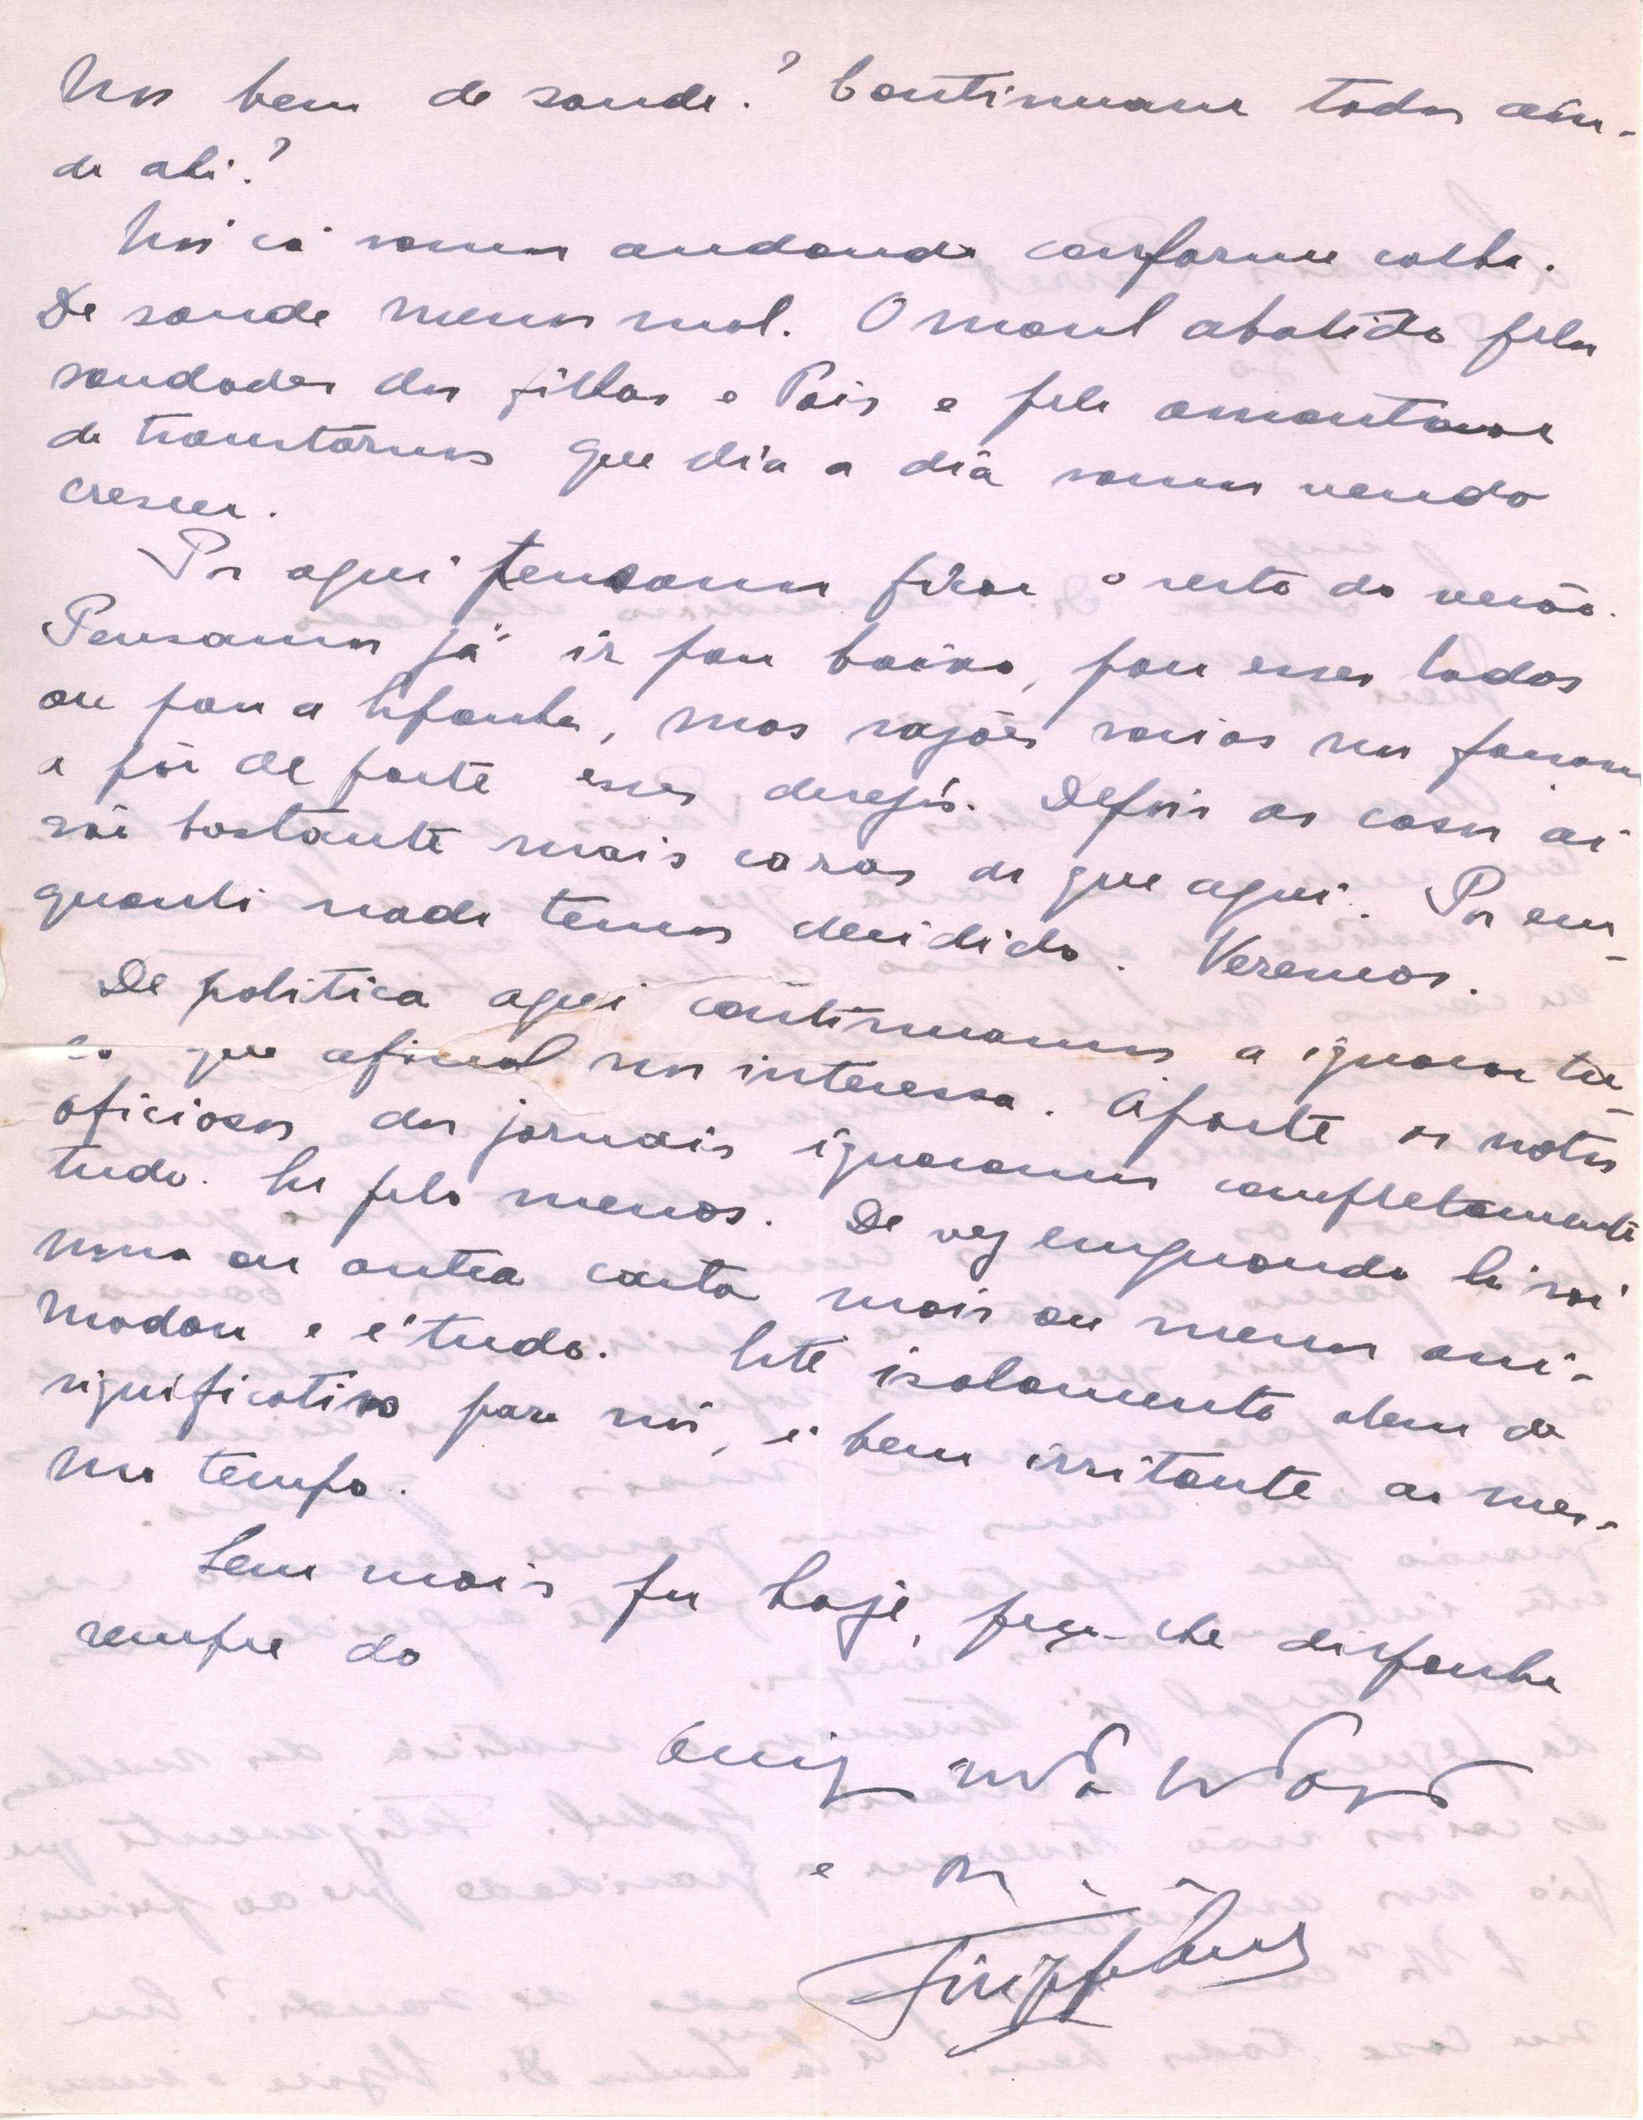 bem de saude? Continuam todos ain-
da ahi?
Nós cá vamos andando conforme calha.
De saude menos mal. O moral abatido pelas
saudades dos filhos e Pais e pelo amontoar
de transtornos que dia a dia vamos vendo
crescer.
Por aqui pensamos ficar o resto do verão.
Pensamos já ir para baixo, para esses lados
ou para a Espanha, mas razões varias nos forçam
a pôr de parte esses desejos. Depois as casas ai
são bastante mais caras do que aqui. Por em-
quanto nada temos decidido. Veremos.
De politica aqui continuamos a ignorar tu-
do que afinal nos interessa. Áparte as notas
oficiosas dos jornais ignoramos completamente
tudo. Eu pelo menos. De vez emquando lá vai
uma ou outra carta mais ou menos ani-
madora e é tudo. Este isolamento alem de
significativo para nós, é bem irritante ao mes-
mo tempo.
Sem mais por hoje, peço-lhe disponha
sempre do
amigo
e